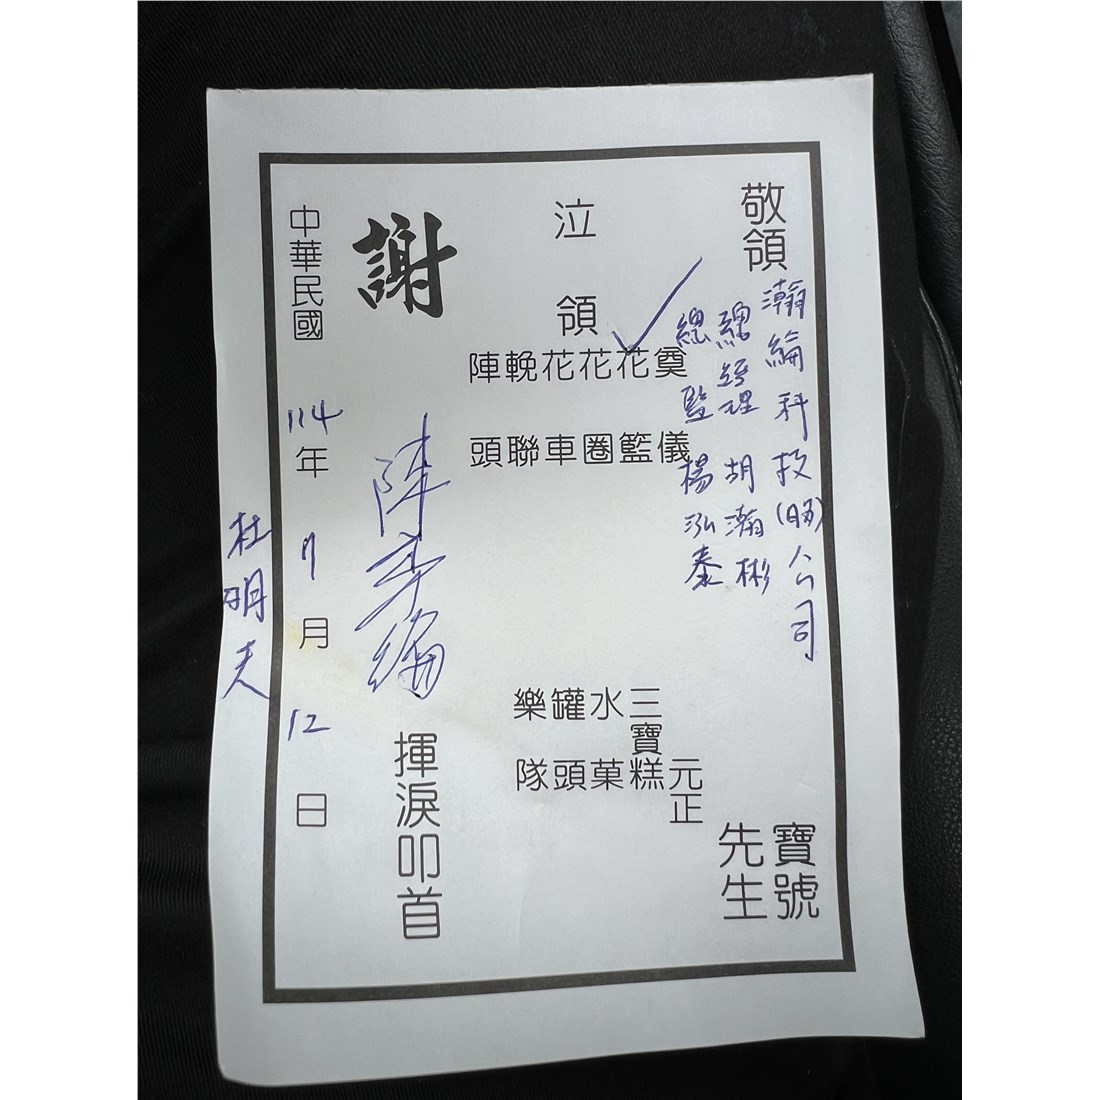 敬領
瀚綸科技(股)公司
總經理 胡瀚彬
總監 楊泓泰
寶號
先生
泣領
奠儀
元正
花籃
三寶糕
花圈
水菓
花車
罐頭
輓聯
樂隊
陣頭
謝
揮淚叩首
中華民國114年7月12日
杜明夫